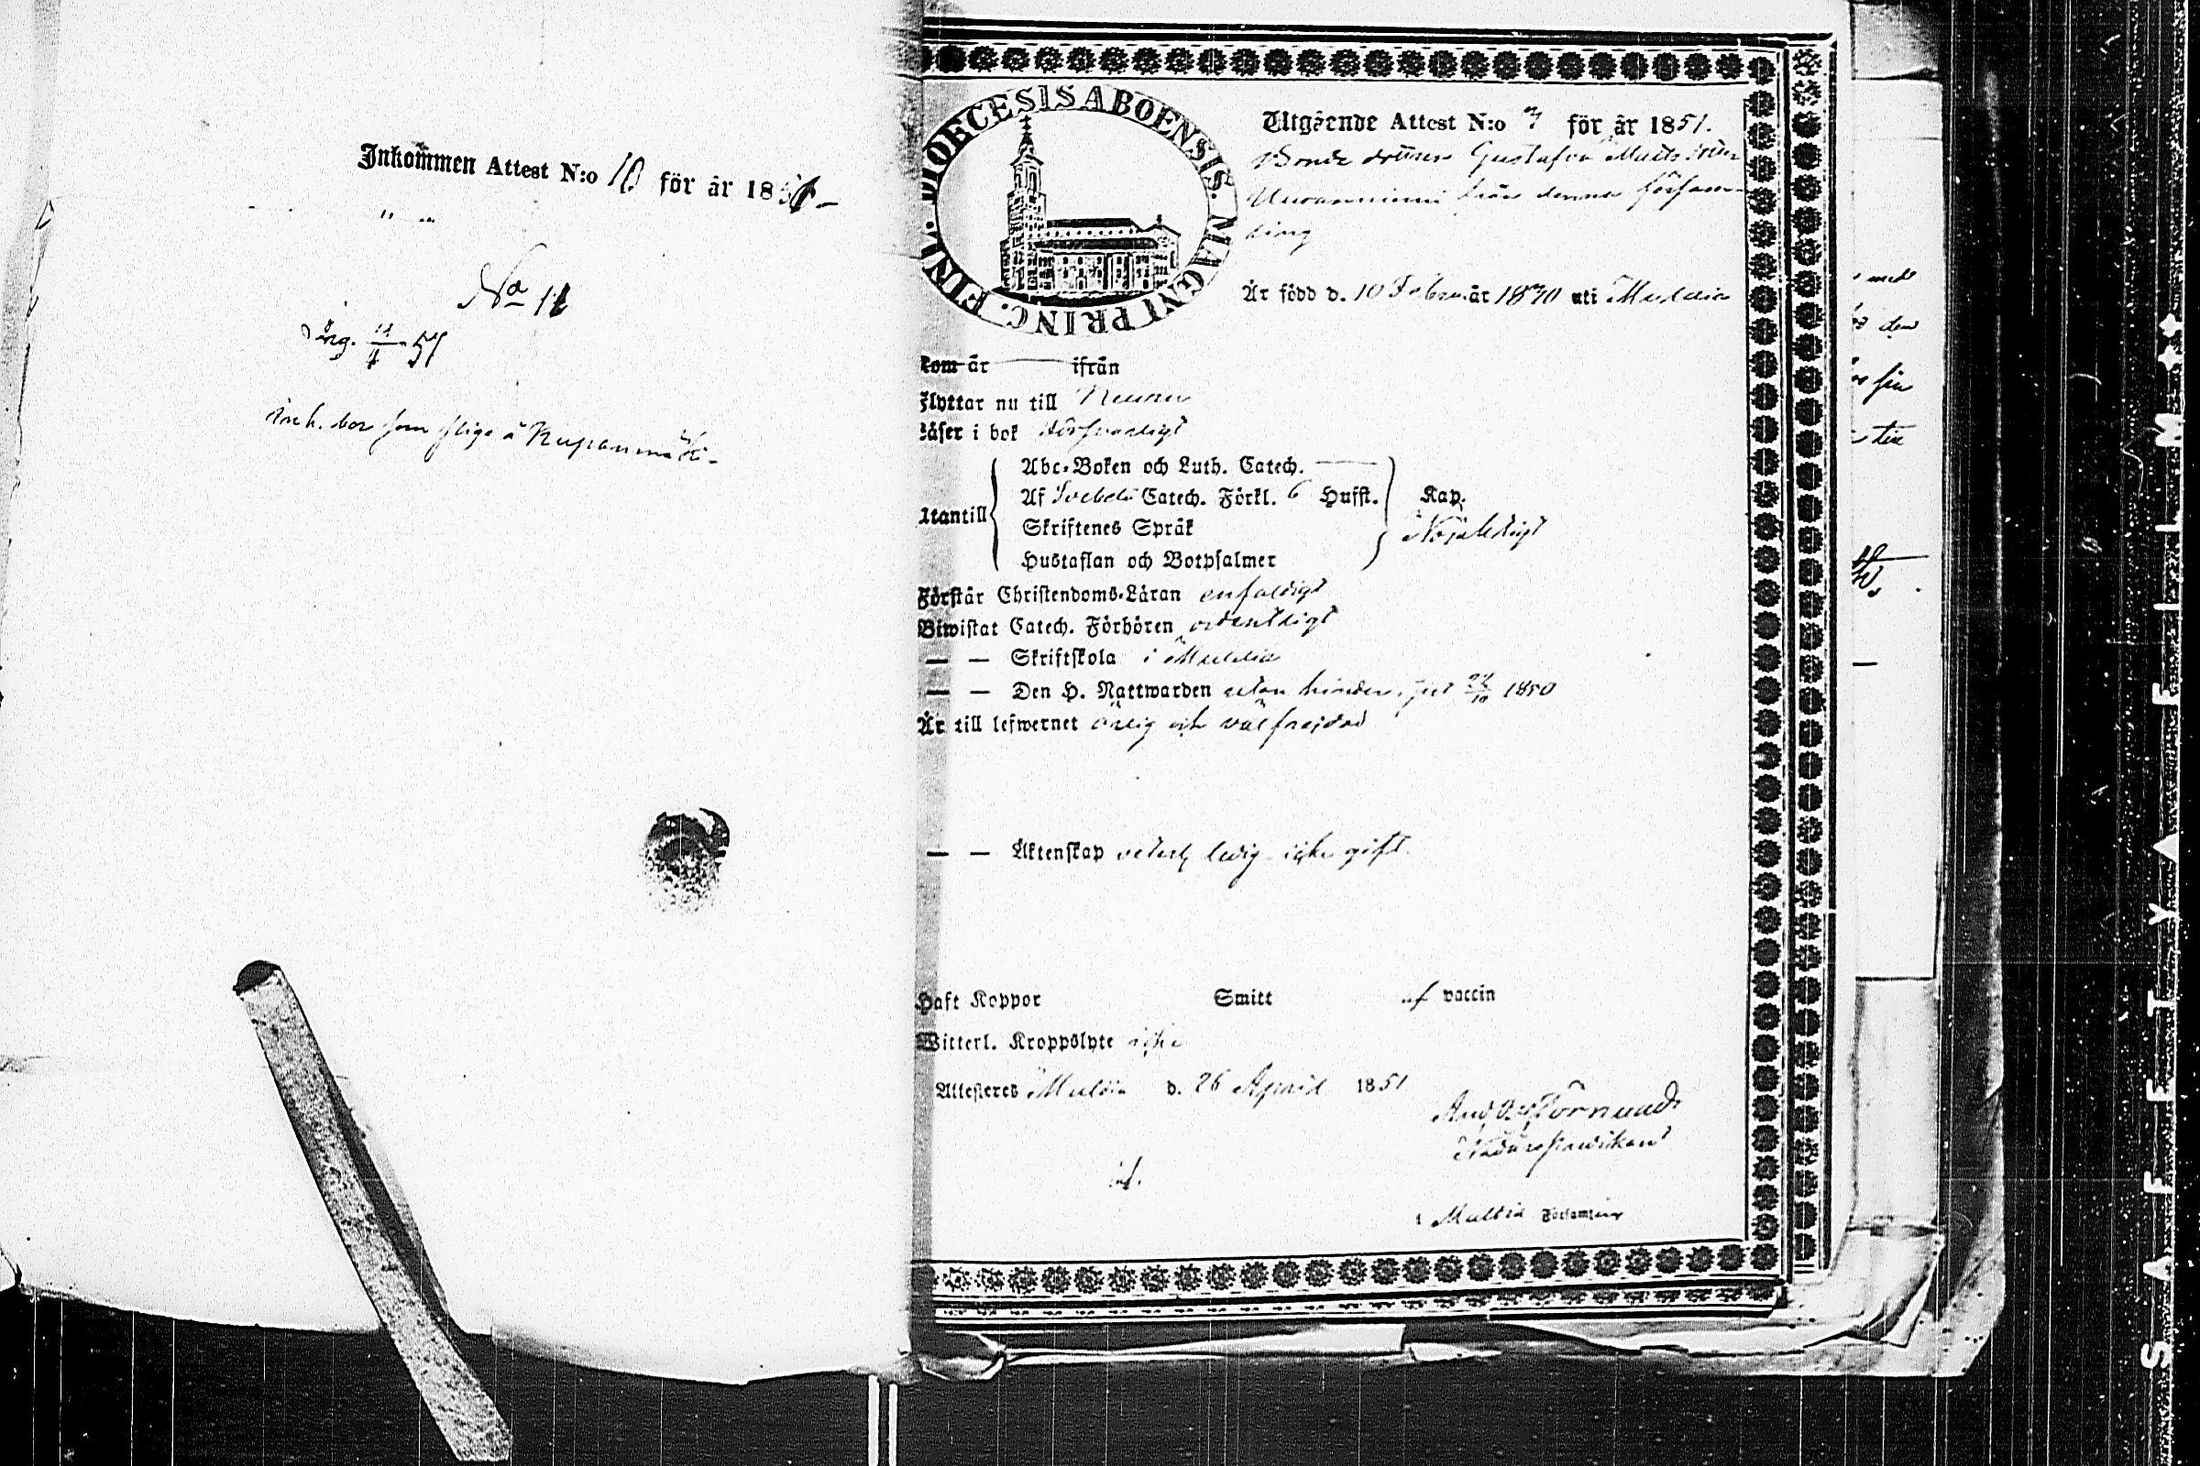 Inkommen Attest N:o 10 för år 1851
No 11
Ing. 51
inh. bor som
DIOECESIS ABOENSIS. MAGNI PRINC. FINL.
Utgående Attest N:o 7 för år 1851.
Bonde dottren Gustafva Matts dotter
från denna församling
Är född d. 10 Februar 1830 uti Multia
kom år ifrån
Flyttar nu till Keuru
Läser i bok försvarligt
Utantill
Abc-Boken och Luth. Catech.
Af Svebelii Catech. Förkl. 6 Hufst. Kap.
Skriftenes Språk Nöjaktigt
Hustaflan och Botpsalmer
Förstår Christendoms-Läran enfaldigt
Biwistat Catech. Förhören ordentligt
— — Skriftskola i Multia
— — Den H. Nattwarden utan hinder, sist 1850
Är till lefwernet ärlig och välfrejdad
— — Äktenskap veterl. ledig icke gift.
Haft Koppor Smitt af vaccin
Witterl. Kroppslyte icke
Attesteras Multia d. 26 April 1851
And. Törnudd
Nådårspredikant
i Multia Församling
med
den
sin
till
SAFETY ▲ FILM